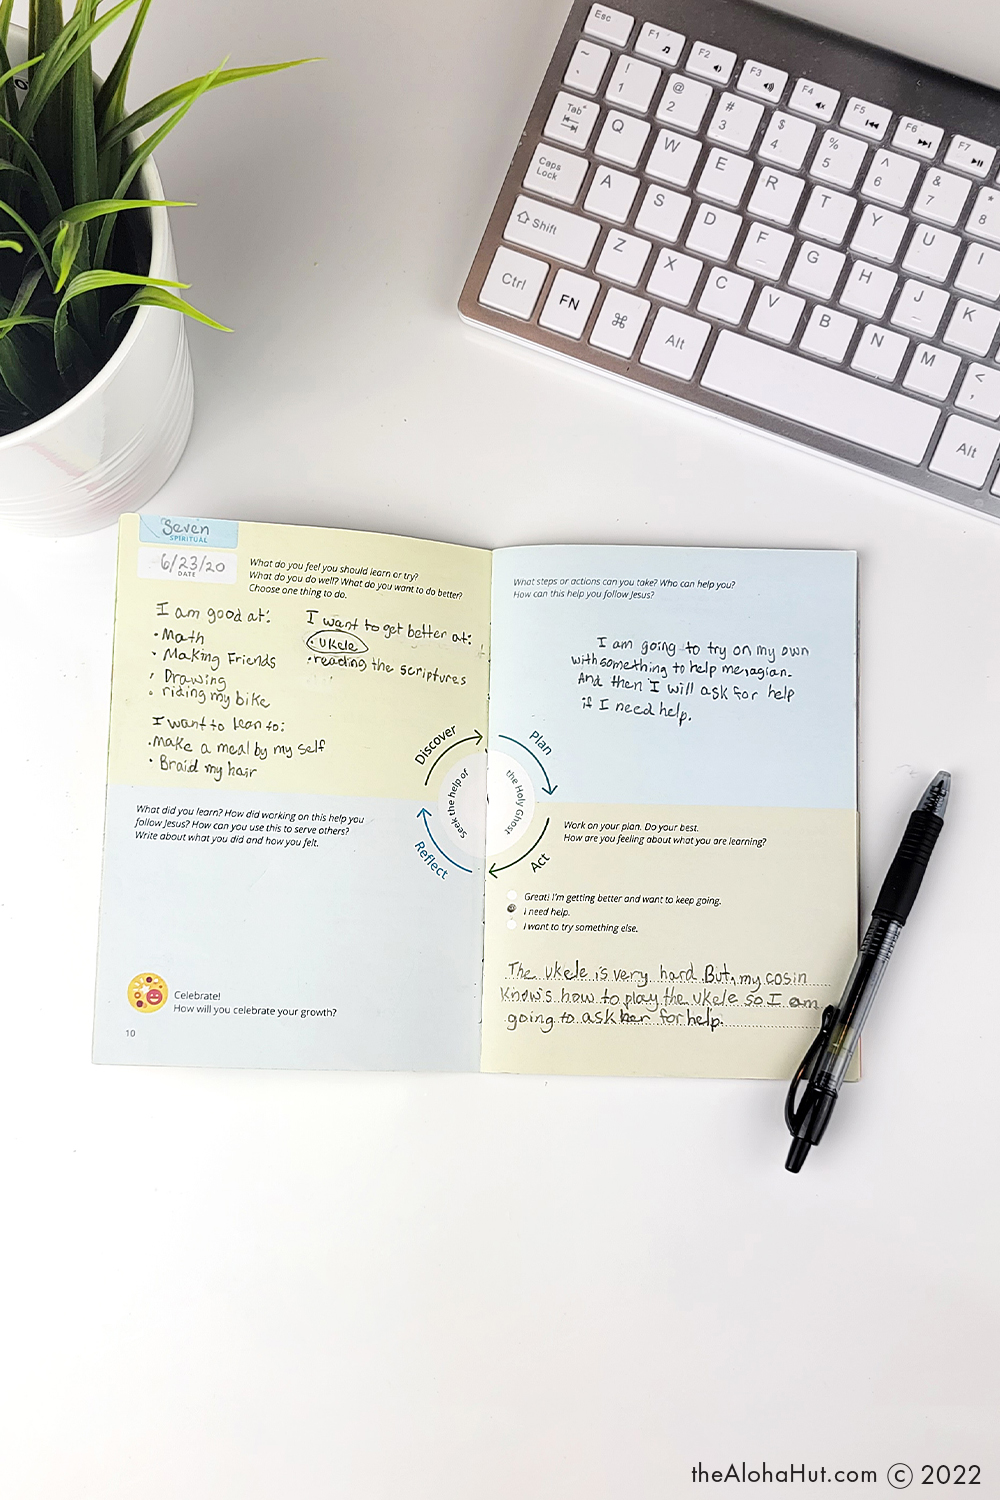 Esc
F1
F2
F3
F4
F5
F6
F7
~
`
!
1
@
2
#
3
$
4
%
5
^
6
&
7
*
8
Tab
Q
W
E
R
T
Y
U
I
Caps
Lock
A
S
D
F
G
H
J
K
Shift
Z
X
C
V
B
N
M
<
,
Ctrl
FN
⌘
Alt
Alt
Seven
SPIRITUAL
6/23/20
DATE
What do you feel you should learn or try?
What do you do well? What do you want to do better?
Choose one thing to do.
I am good at:
• Math
• Making Friends
• Drawing
• riding my bike
I want to lean to:
• Make a meal by my self
• Braid my hair
I want to get better at:
• ukele
• reading the scriptures
What steps or actions can you take? Who can help you?
How can this help you follow Jesus?
I am going to try on my own
with something to help me
And then I will ask for help
if I need help.
Discover
Plan
Act
Reflect
Seek the help of
the Holy Ghost
What did you learn? How did working on this help you
follow Jesus? How can you use this to serve others?
Write about what you did and how you felt.
Celebrate!
How will you celebrate your growth?
10
Work on your plan. Do your best.
How are you feeling about what you are learning?
Great! I'm getting better and want to keep going.
I need help.
I want to try something else.
The ukele is very hard. But, my cosin
Know's how to play the ukele so I am
going to ask her for help.
theAlohaHut.com © 2022